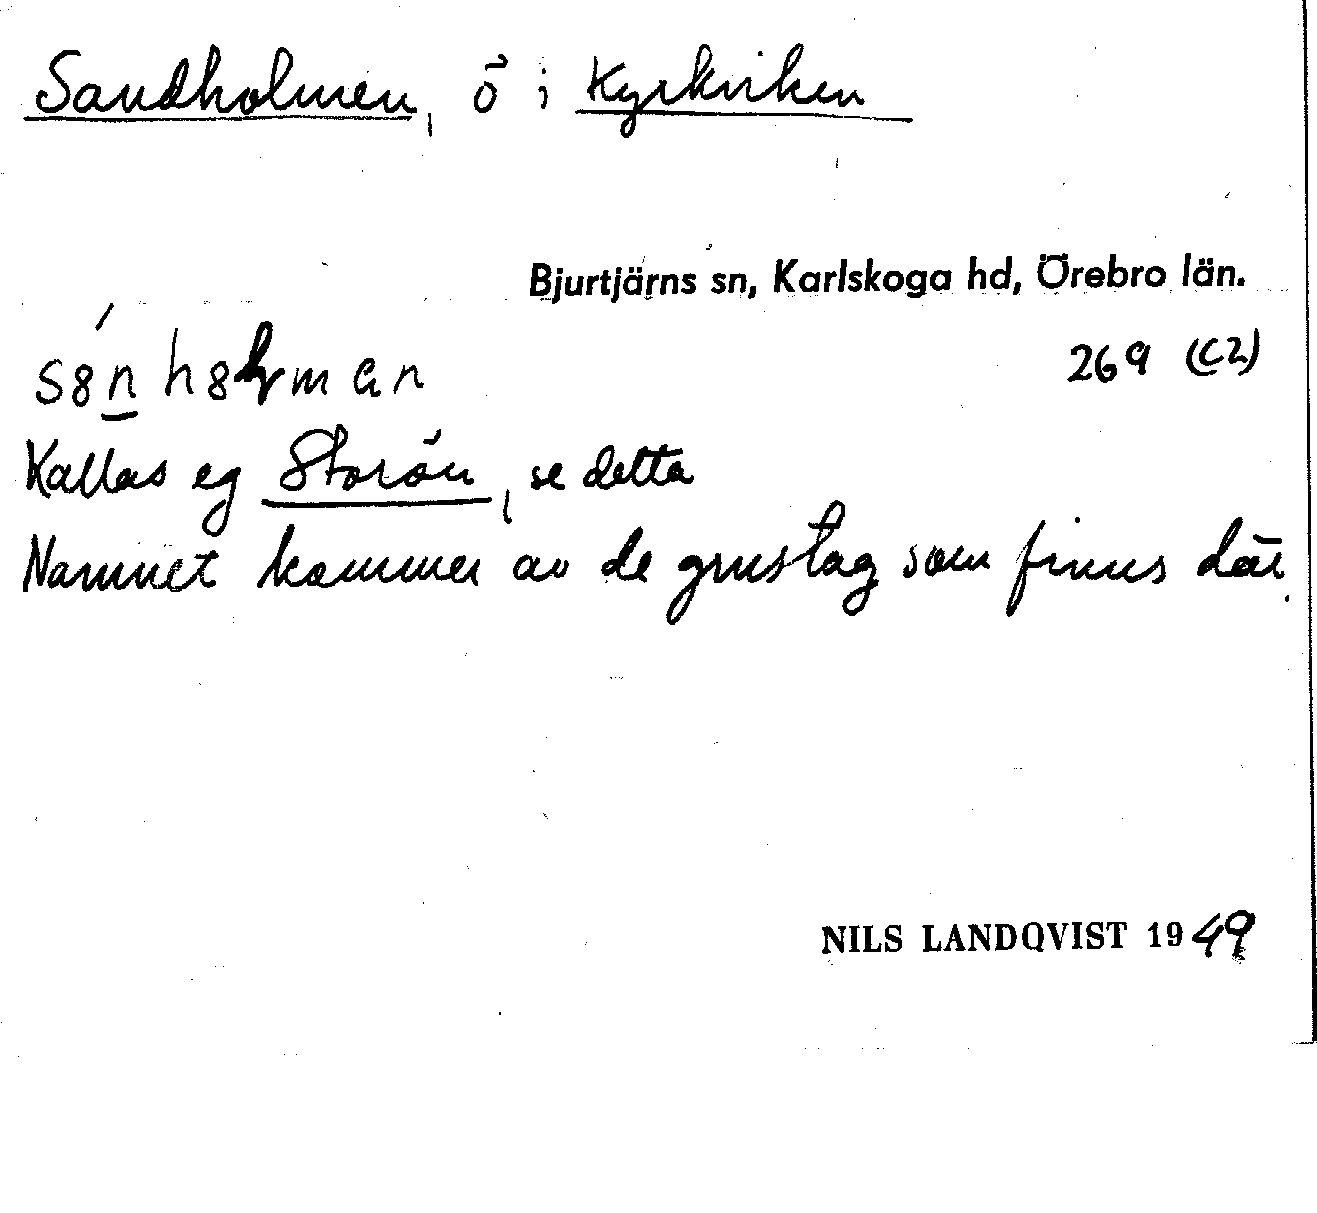 Sandholmen, ö i Kyrkviken
Bjurtjärns sn, Karlskoga hd, Örebro län.
269 (C2)
Kallas eg Storön, se detta
Namnet kommer av de grustag som finns där.
NILS LANDQVIST 1949